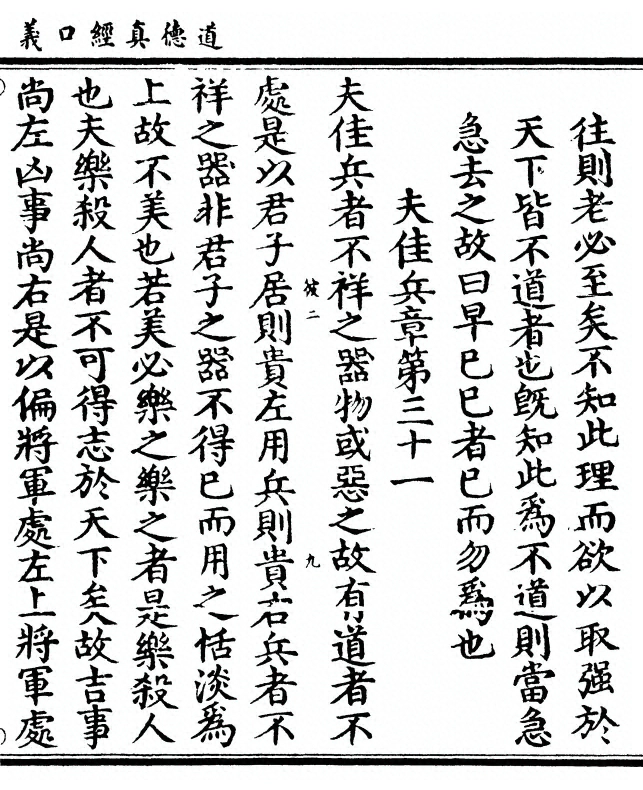 道德真經口義
往則老必至矣不知此理而欲以取强於
天下皆不道者也旣知此爲不道則當急
急去之故曰早已已者已而勿爲也
夫佳兵章第三十一
夫佳兵者不祥之器物或惡之故有道者不
彼二
九
處是以君子居則貴左用兵則貴右兵者不
祥之器非君子之器不得已而用之恬淡爲
上故不美也若美必樂之樂之者是樂殺人
也夫樂殺人者不可得志於天下矣故吉事
尚左凶事尚右是以偏將軍處左上將軍處